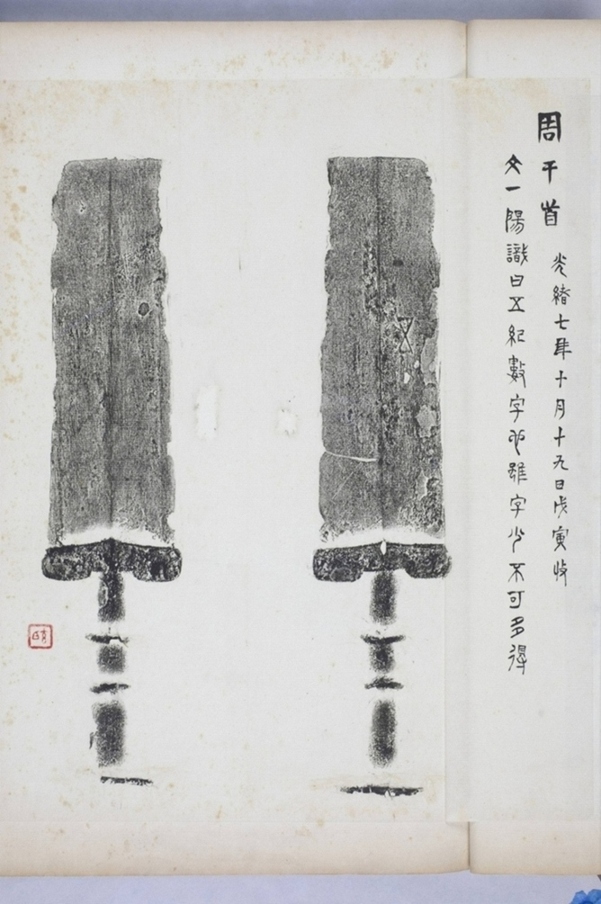 周干首 光緒七年十月十九日戊寅收
文一陽識曰五紀數字也雖字少不可多得